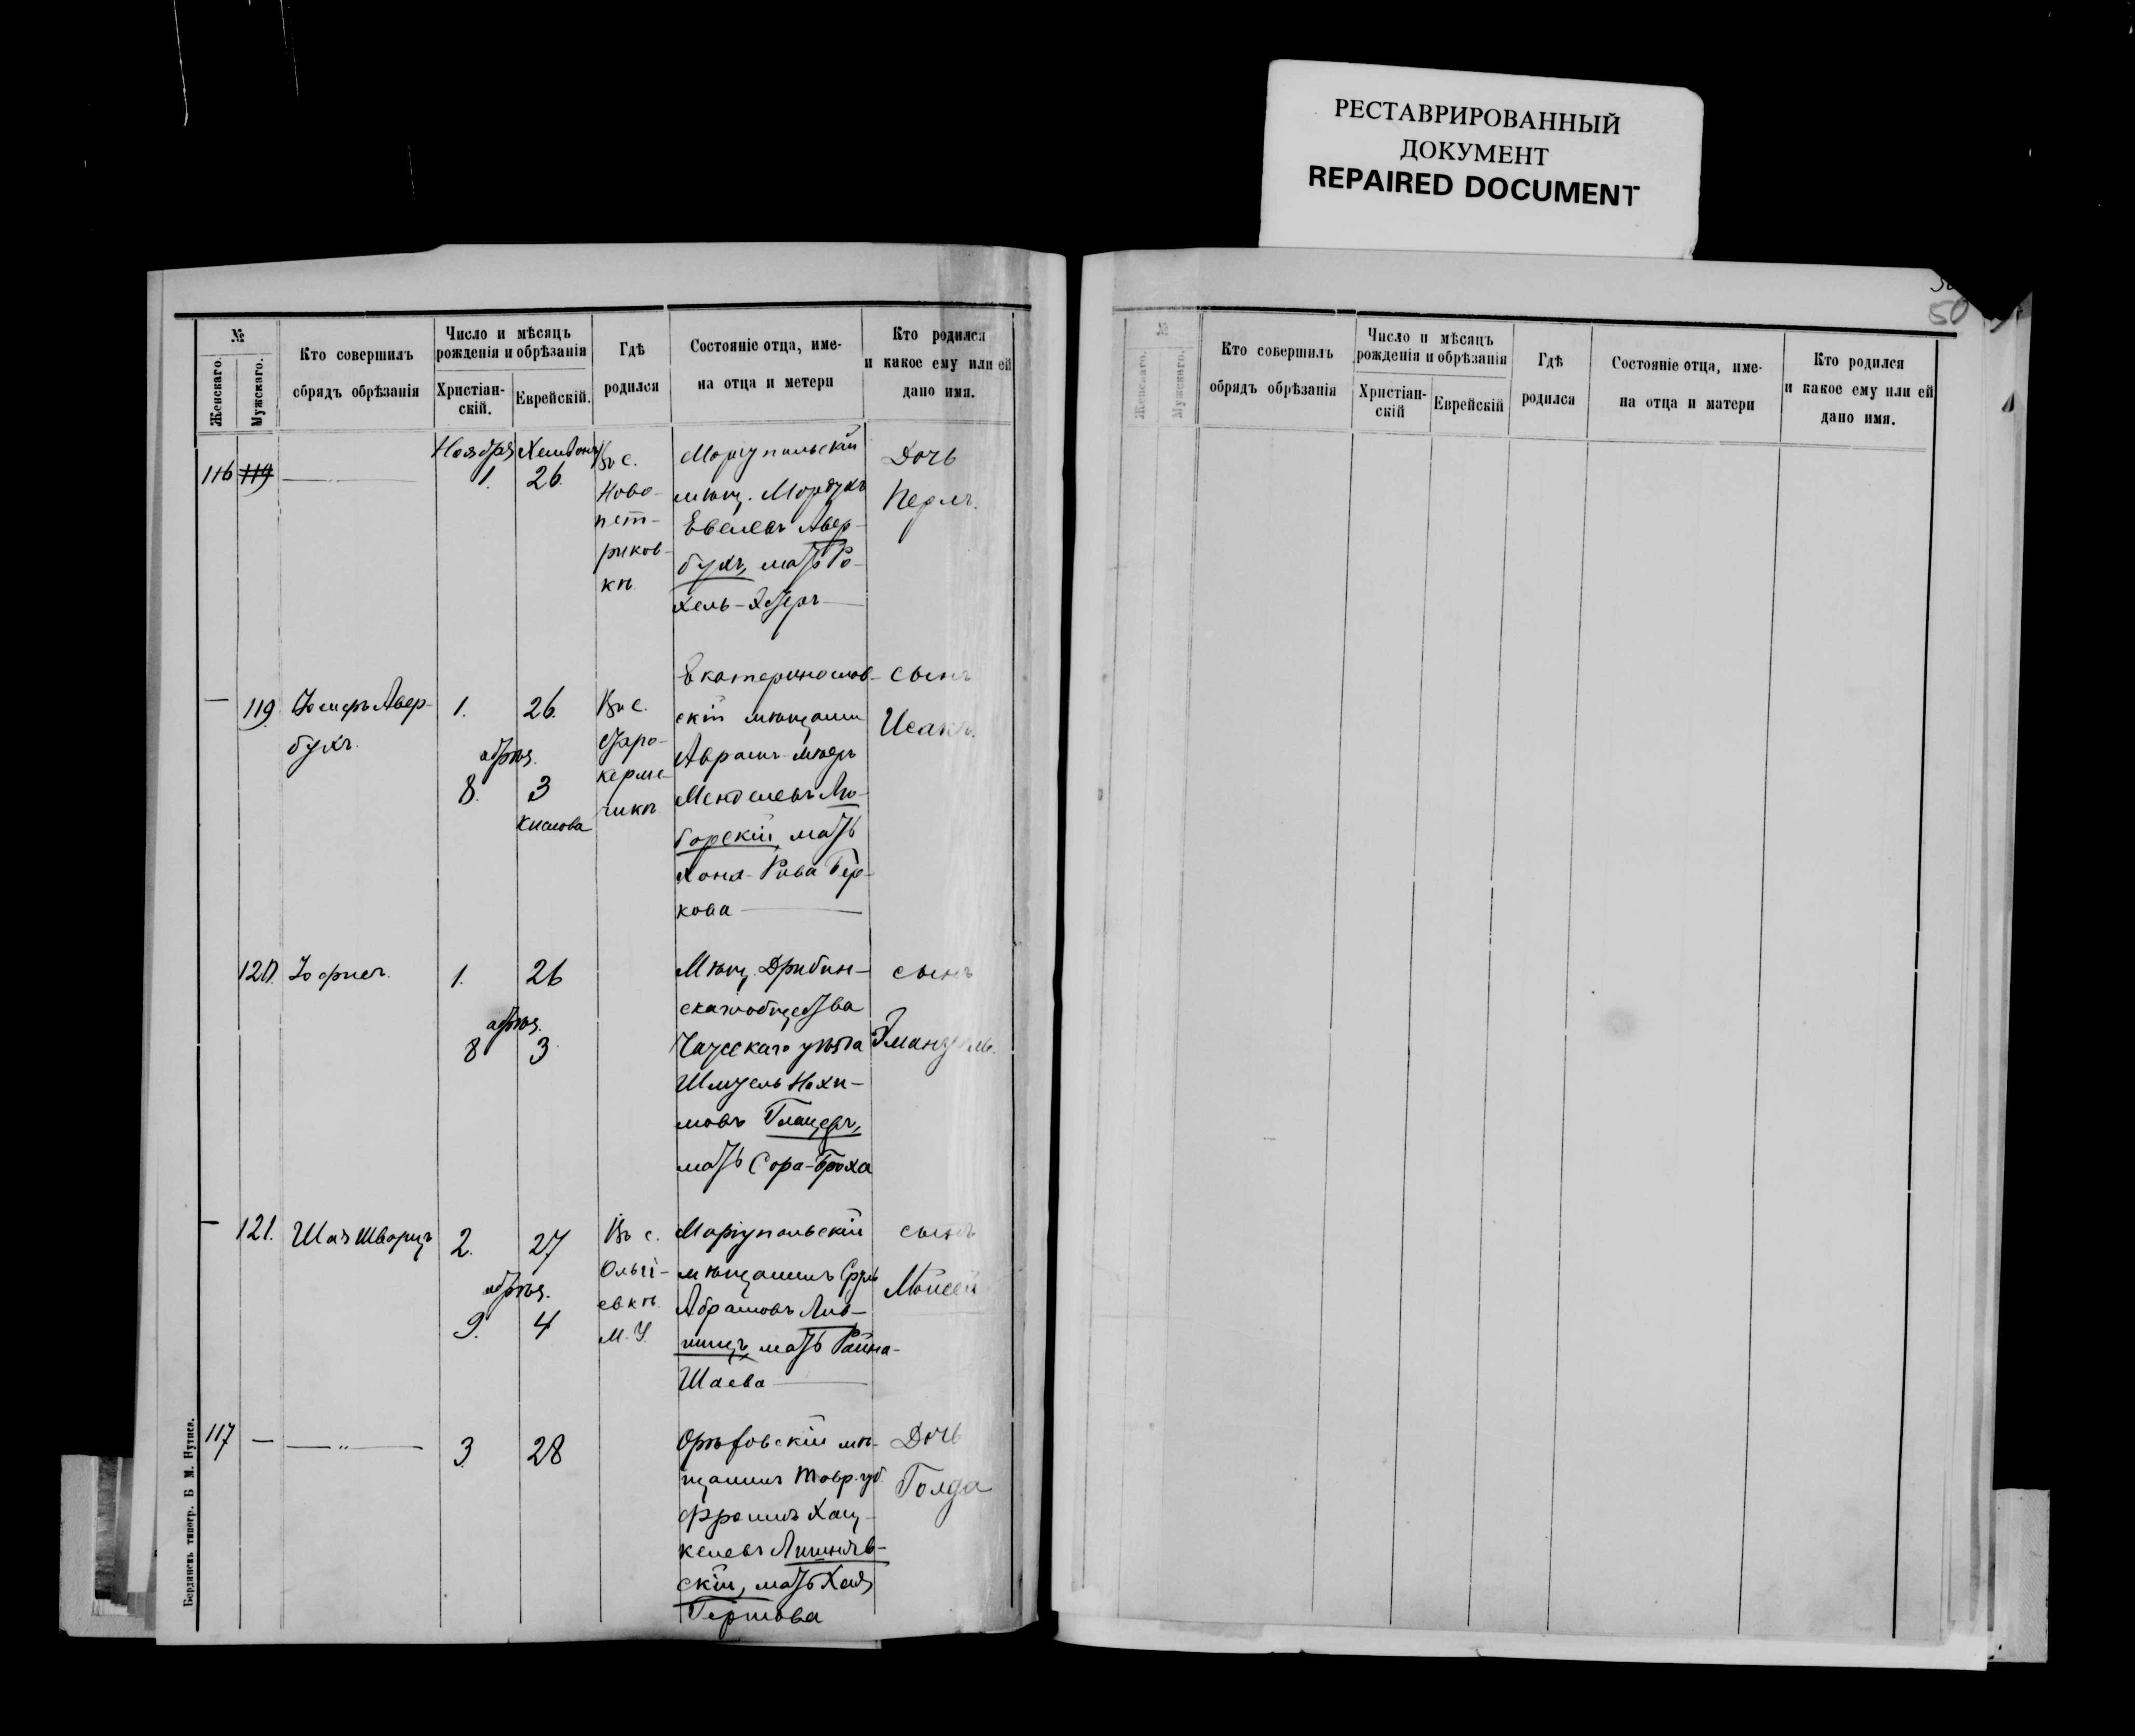 РЕСТАВРИРОВАННЫЙ
ДОКУМЕНТ
REPAIRED DOCUMENT
50
№
Женскаго.
Мужскаго.
Кто совершилъ
обрядъ обрѣзанія
Число и мѣсяцъ
рожденія и обрѣзанія
Христіан-
скій.
Еврейскій.
Гдѣ
родился
Состояніе отца, име-
на отца и метери
Кто родился
и какое ему или ей
дано имя.
Ноября
116 119
1. 26.
Въ с.
Ново-
пет-
риков-
кѣ
Маріупольскій
мѣщ. Мордухъ
Евелевъ Авер-
бухъ, мать Ро-
хель-Эстеръ
Дочь
Перль.
— 119
Авер-
бухъ.
1. 26.
обрѣз.
8. 3
Кислова
Въ с.
Старо-
керме-
чикѣ
Екатеринослав-
скій мѣщанин
Аврамъ-Мееръ
Менделевъ Лю-
борскій, мать
Хона-Рива Бер-
кова
сынъ
Исаакъ.
120.
1. 26
обрѣз.
8 3
Мѣщ. Дрибин-
скагообщества
Чаусскаго уѣзда
Шмуель Нохи-
мовъ Гланцеръ,
мать Сора-Броха
сынъ
Эмануель.
— 121.
Шая Шварцъ
2. 27
обрѣз.
9. 4
Въ с.
Ольгі-
евкѣ
М. У.
Маріупольскій
мѣщанинъ Сруль
Абрамовъ Лив-
шицъ, мать Райна-
Шаева
сынъ
Мойсей
117 —
— „ —
3 28
Орѣховскій мѣ-
щанинъ Тавр. губ.
Фроимъ Хац-
келевъ Лишняв-
скій, мать Хая
Гершова
Дочь
Голда
Бердянскъ типогр. Б. М. Нутиса.
№
Женскаго.
Мужскаго.
Кто совершилъ
обрядъ обрѣзанія
Число и мѣсяцъ
рожденія и обрѣзанія
Христіан-
скій
Еврейскій
Гдѣ
родился
Состояніе отца, име-
на отца и матери
Кто родился
и какое ему или ей
дано имя.